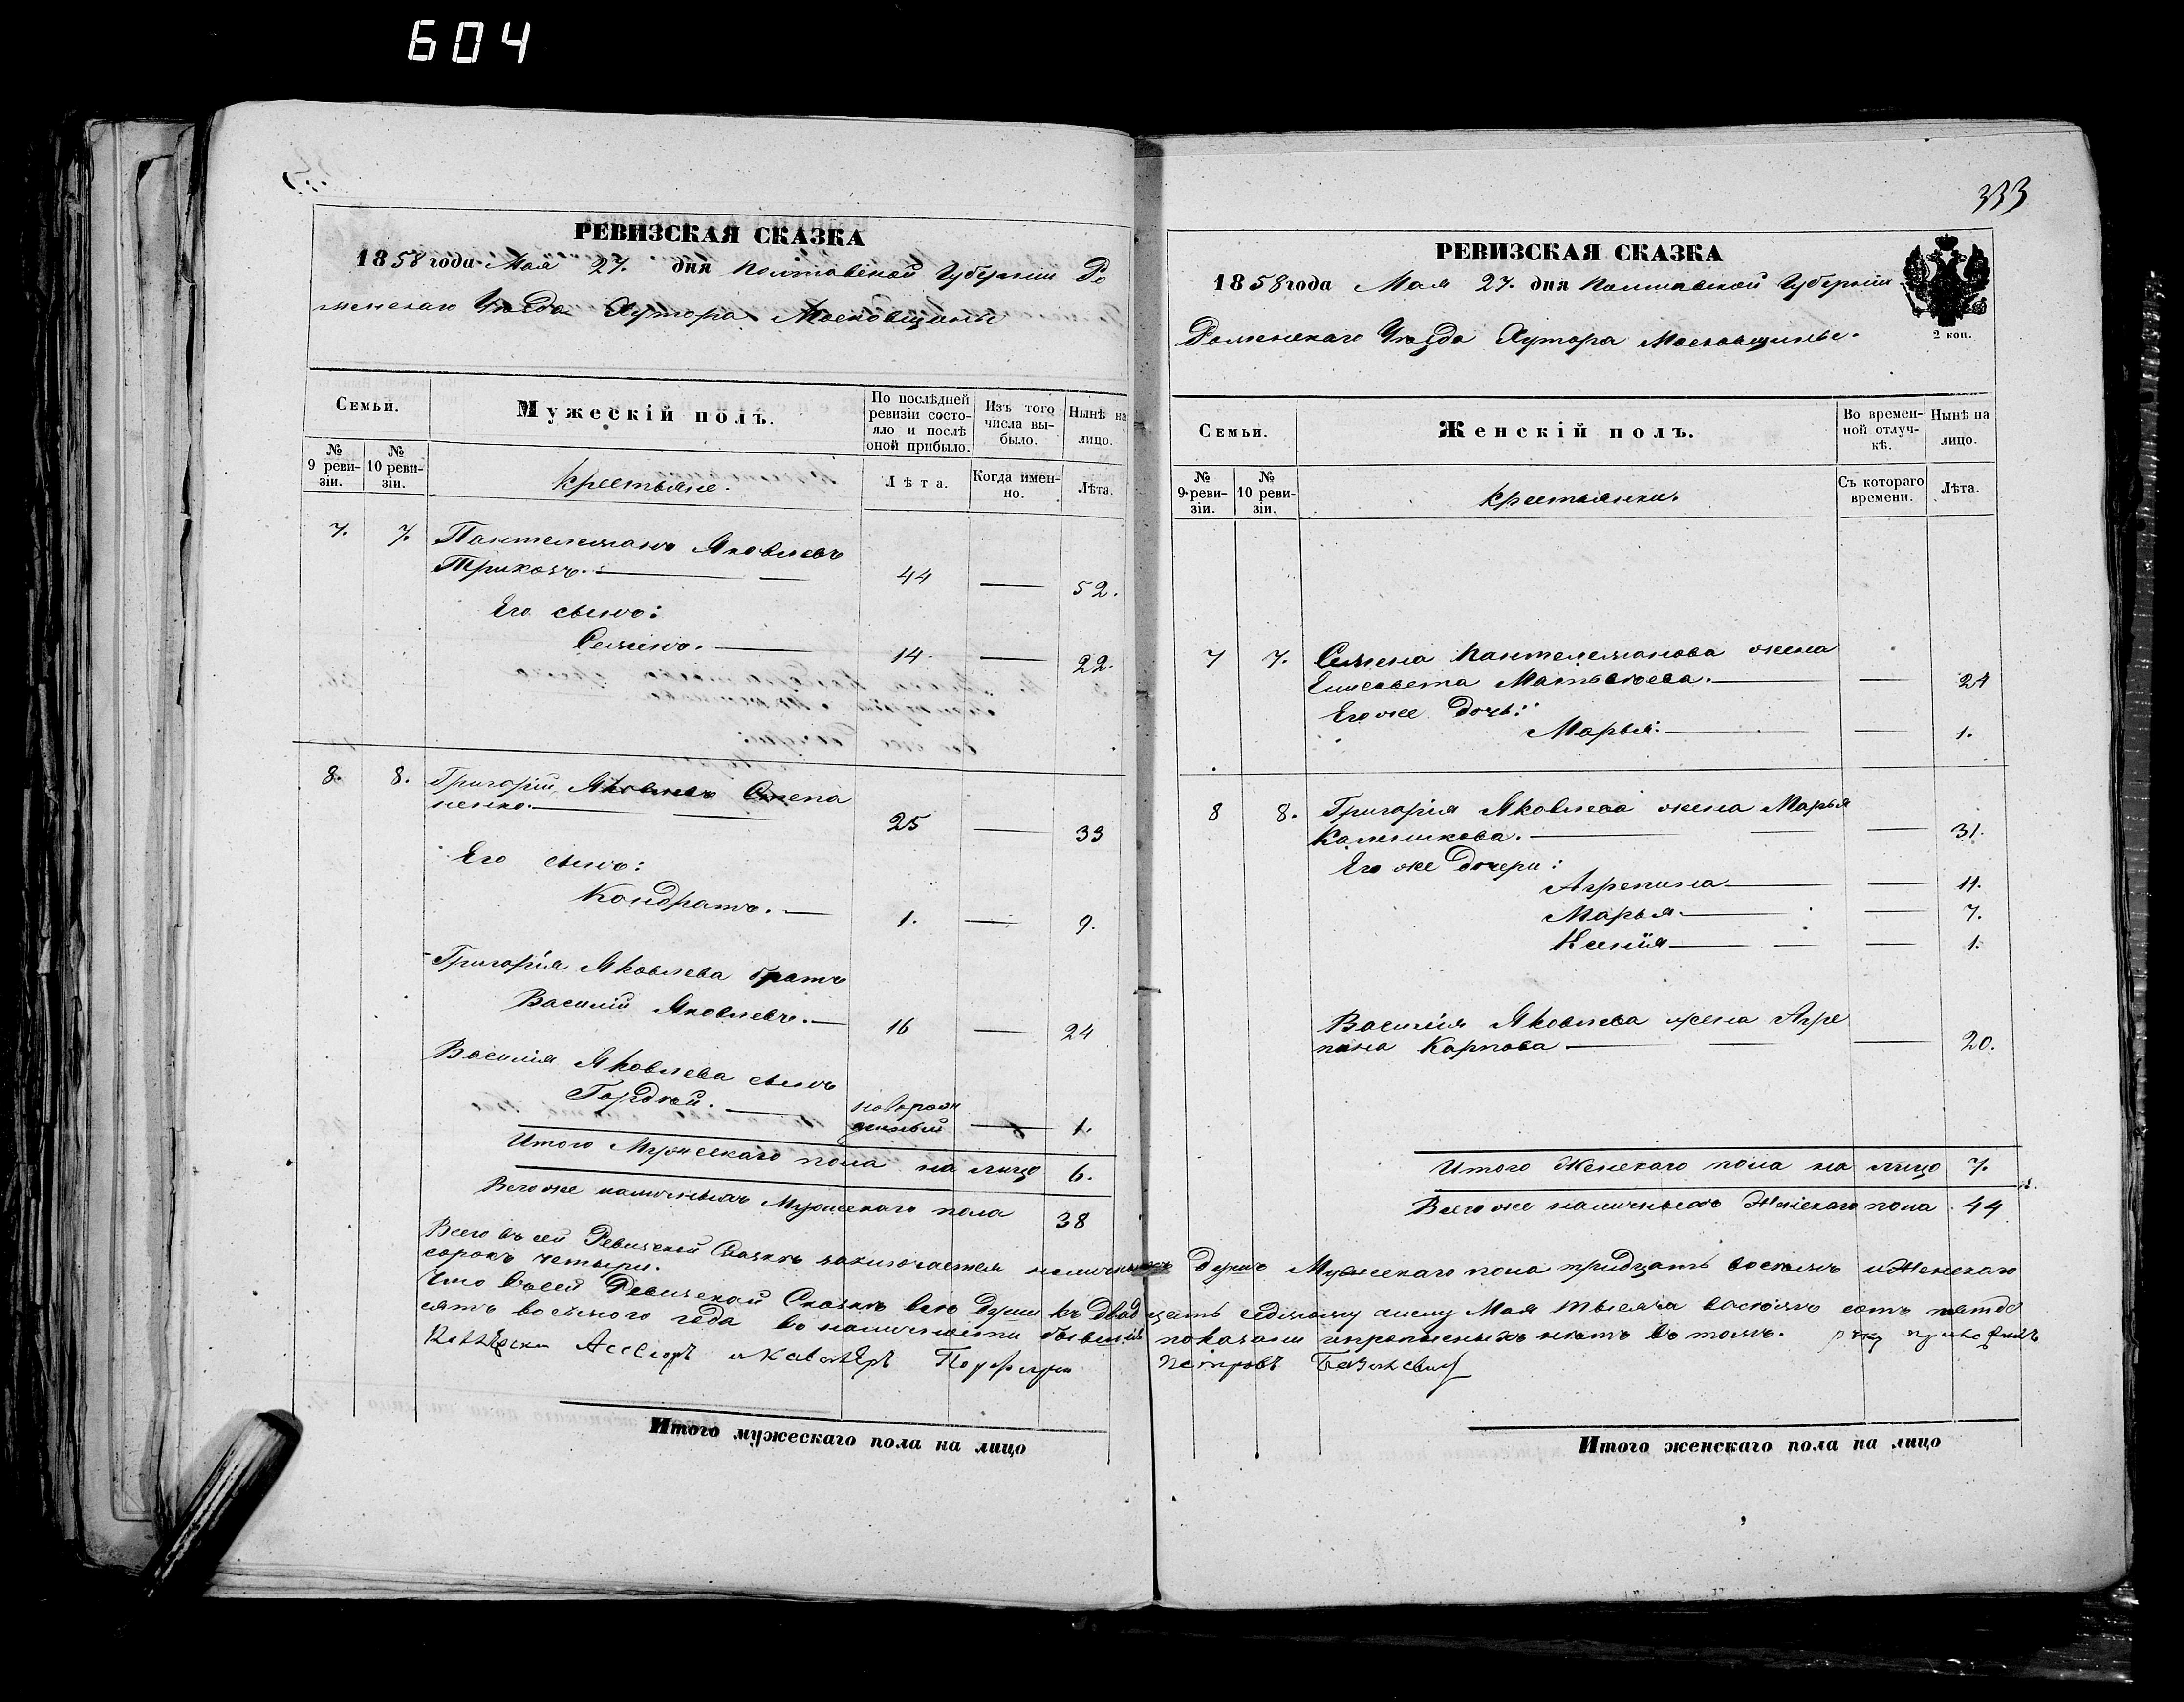 604
РЕВИЗСКАЯ СКАЗКА
1858 года Мая 27. дня Полтавской Губернии Ро
менскаго Уѣзда Хутора Московщины
Семьи.
Мужескій полъ.
По послѣдней
ревизіи состо-
яло и послѣ
оной прибыло.
Изъ того
числа вы-
было.
Нынѣ на
лицо.
№
9 реви-
зіи.
№
10 реви-
зіи.
Крестьяне.
Лѣта.
Когда имен-
но.
Лѣта.
7. 7. Пантелемонъ Яковлевъ
Трихомъ. 44 — 52.
Его сынъ:
Семенъ. 14. — 22.
8. 8. Григорій Яковлевъ Степа
ненко. 25 — 33
Его сынъ:
Кондратъ. — 1. — 9.
Григорія Яковлева братъ
Василій Яковлевъ. — 16 — 24
Василія Яковлева сынъ
Гордѣй. — новорож
денный — 1.
Итого Мужескаго пола на лицо 6.
Всего же наличныхъ Мужескаго пола 38
333
РЕВИЗСКАЯ СКАЗКА
1858 года Мая 27. дня Полтавской Губерніи
Роменскаго Уѣзда Хутора Московщины.
2 коп.
Семьи.
Женскій полъ.
Во времен-
ной отлуч-
кѣ.
Нынѣ на
лицо.
№
9 реви-
зіи.
№
10 реви-
зіи.
Крестьянки.
Съ котораго
времени.
Лѣта.
7 7. Семена Пантелемонова жена
Елисавета Матвѣева. — 24
Его же дочь:
Марья. — 1.
8 8. Григорія Яковлева жена Марья
Калышкова. — 31.
Его же дочери:
Агрепина — 11.
Марья. — 7.
Ксенія — 1.
Василія Яковлева жена Агре
пина Карпова — 20.
Итого Женскаго пола на лицо 7.
Всего же наличныхъ Женскаго пола 44
Всего въ сей Ревизской Сказкѣ заключается наличныхъ душъ Мужескаго пола тридцать восемь и Женскаго
сорокъ четыри.
Что въ сей Ревизской Сказкѣ всѣ души къ двадцать седьмому числу Мая тысяча восемь сотъ пятде
сятъ восьмого года во наличности бывшія показаны и прописныхъ нѣтъ въ томъ. руку приложилъ
Коллежски Асесоръ и Кавалеръ Порфирiй Петровъ Базилевичъ
Итого мужескаго пола на лицо
Итого женскаго пола на лицо